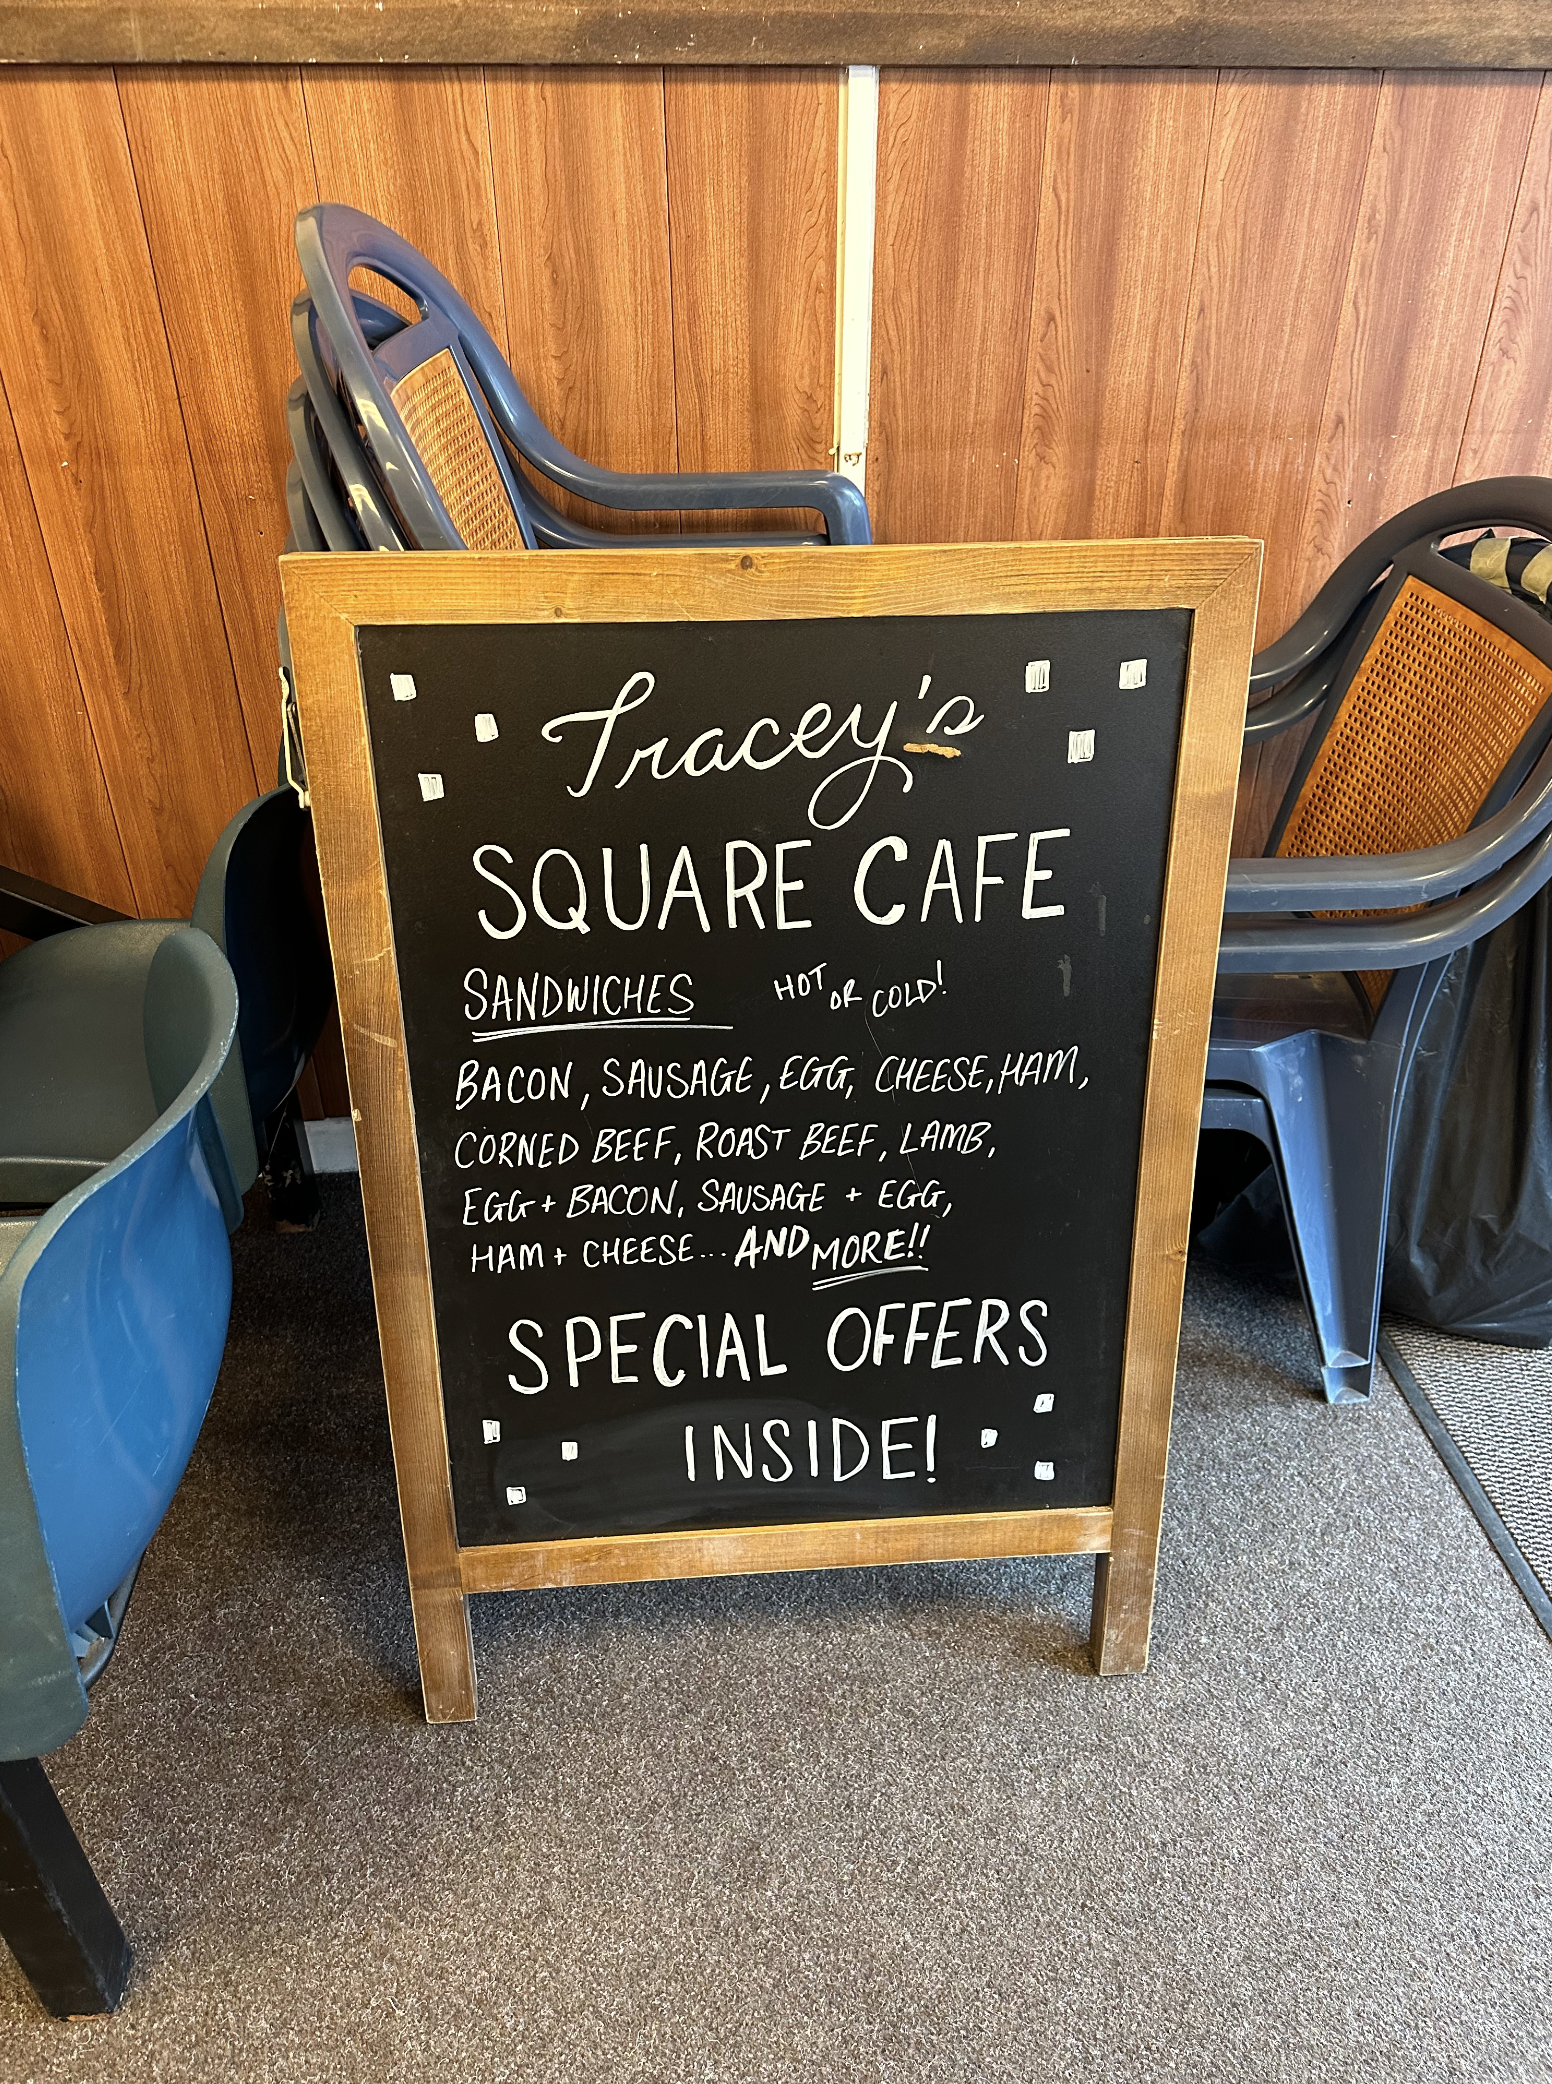 Tracey's
SQUARE CAFE
SANDWICHES HOT OR COLD!
BACON, SAUSAGE, EGG, CHEESE, HAM,
CORNED BEEF, ROAST BEEF, LAMB,
EGG + BACON, SAUSAGE + EGG,
HAM + CHEESE... AND MORE!!
SPECIAL OFFERS
INSIDE!